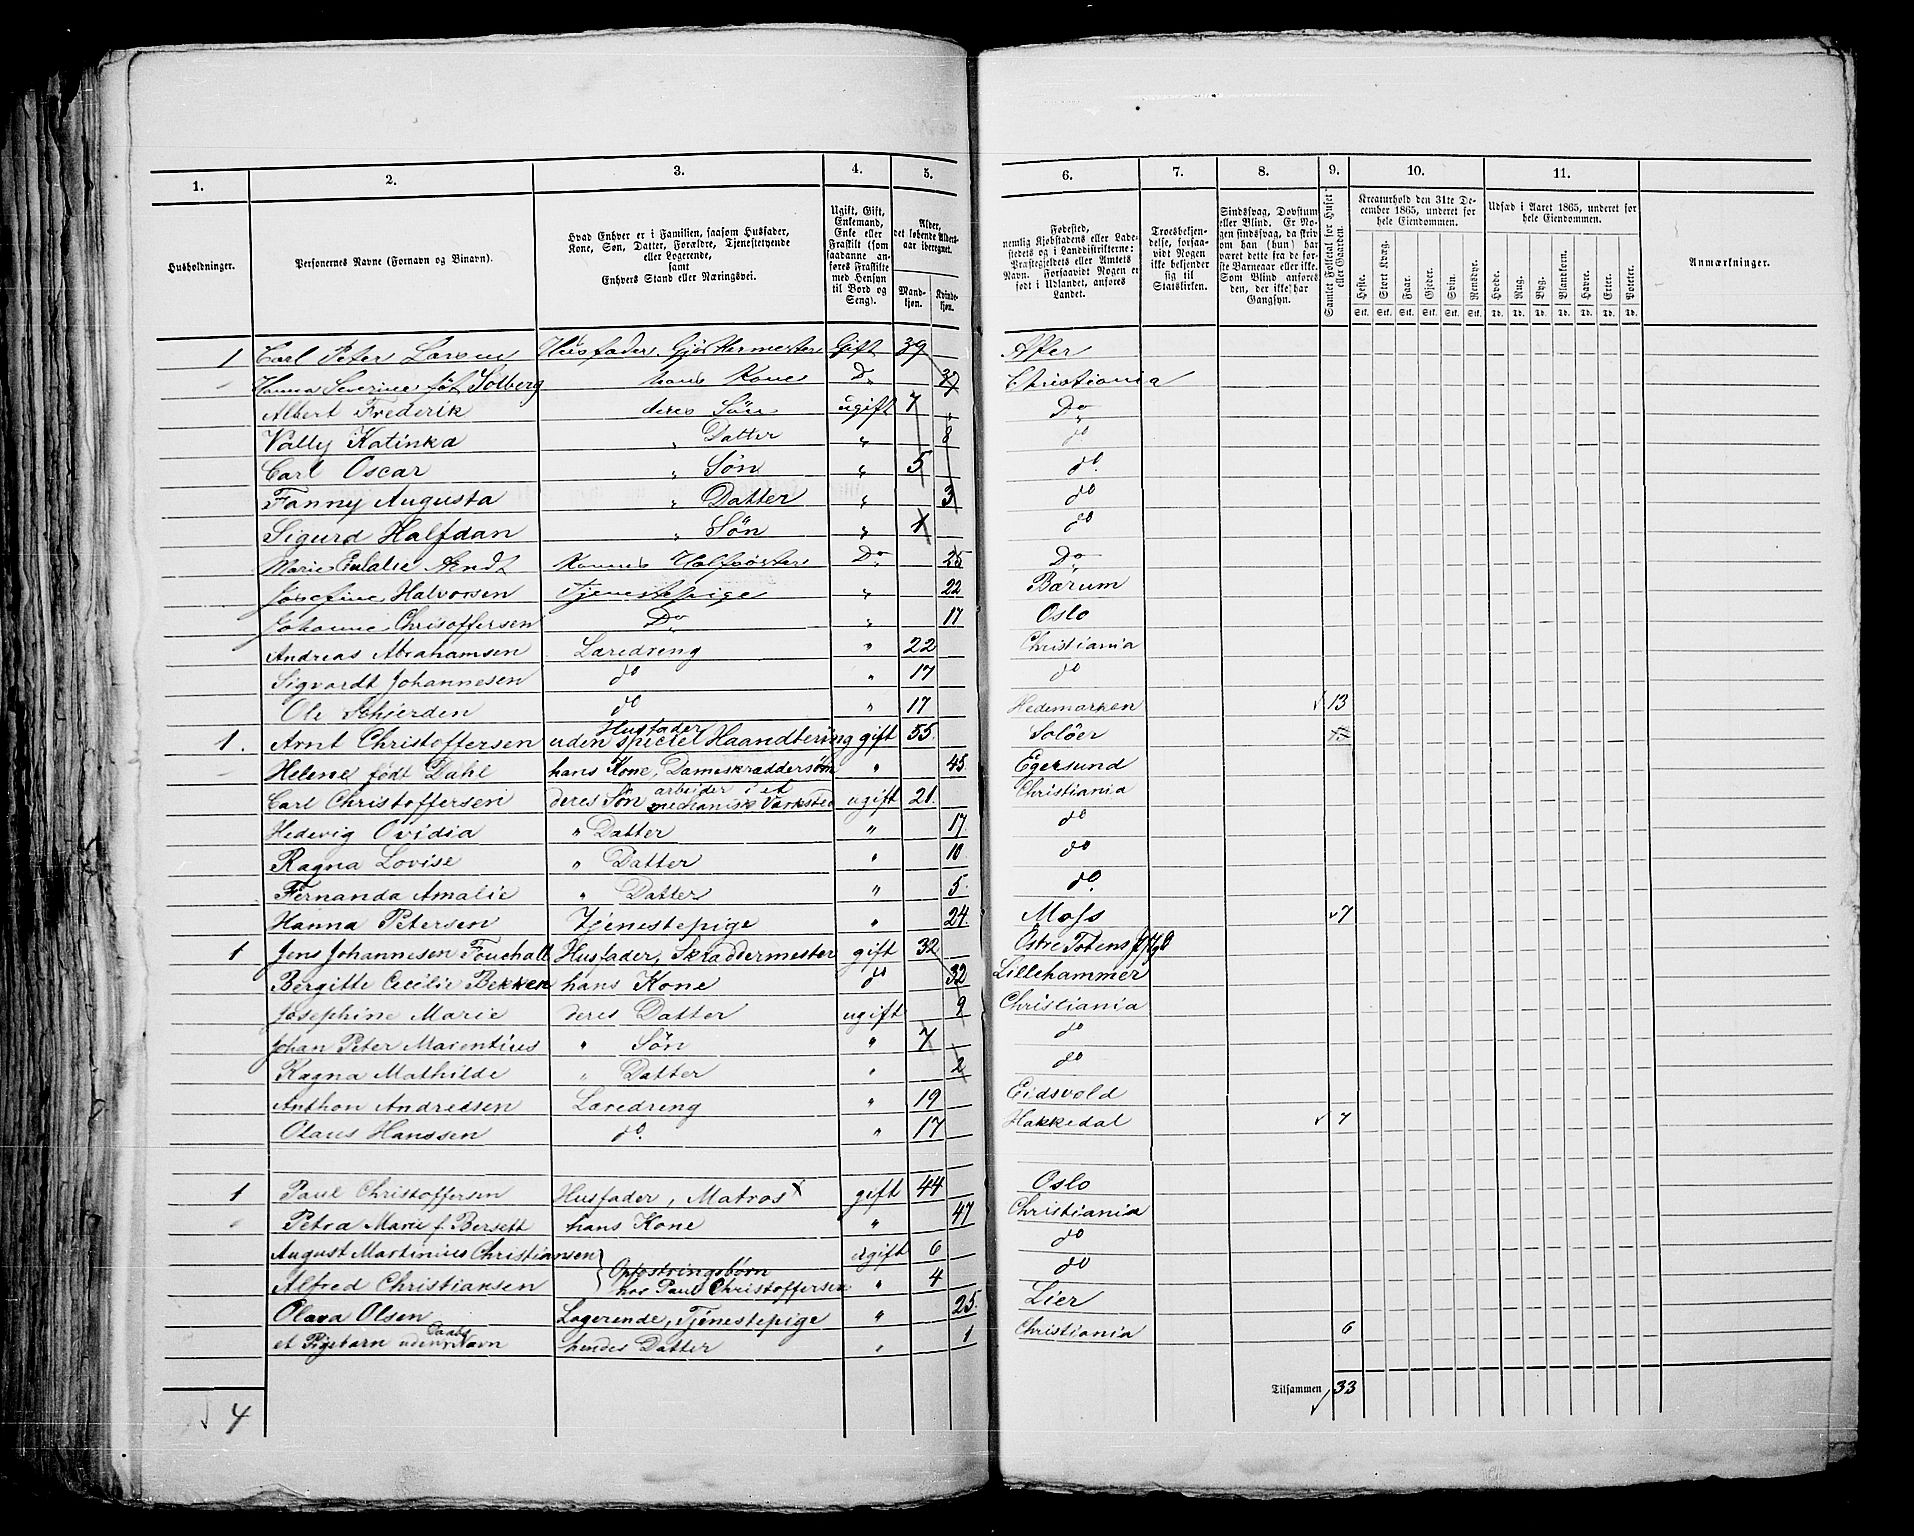 1. 2. 3. 4. 5. 6. 7. 8. 9. 10. 11.
Husholdninger. | Personernes Navne (Fornavn og Binavn). | Hvad Enhver er i Familien, saasom Husfader, Kone, Søn, Datter, Forældre, Tjenestetyende eller Logerende, samt Enhvers Stand eller Næringsvei. | Ugift, Gift, Enkemand, Enke eller Fraskilt (som saadanne anføres Fraskilte med Hensyn til Bord og Seng). | Alder, det løbende Alders-aar iberegnet. Mand-kjøn. Kvinde-kjøn. | Fødested, nemlig Kjøbstadens eller Ladestedets og i Landdistrikterne: Præstegjeldets eller Amtets Navn. Forsaavidt Nogen er født i Udlandet, anføres Landet. | Troesbekjendelse, forsaavidt Nogen ikke bekjender sig til Statskirken. | Sindssvag, Døvstum eller Blind. Er Nogen sindssvag, da skrives om han (hun) har været dette fra de første Barneaar eller ikke. Som Blind anføres den, der ikke har Gangsyn. | Samlet Folketal for Huset eller Gaarden. | Kreaturhold den 31te December 1865, underet for hele Eiendommen. Heste. Stort Kvæg. Faar. Gjeder. Svin. Rensdyr. Stk. Stk. Stk. Stk. Stk. Stk. | Udsæd i Aaret 1865, underet for hele Eiendommen. Hvede. Rug. Byg. Blandkorn. Havre. Erter. Poteter. Td. Td. Td. Td. Td. Td. Td. | Anmærkninger.
1 Carl Peter Larsen Husfader, Gjørtlermester Gift 39 Aker
Hanna Severine født Solberg hans Kone Do 37 Christiania
Albert Frederik deres Søn ugift 7 Do
Vally Katinka " Datter " 8 do
Carl Oscar " Søn " 5 do.
Fanny Augusta " Datter " 3 do
Sigurd Halfdan " Søn " 1 do
Marie Eulalie Arndt Konens Halfsøster Do 25 Do
Josefine Halvorsen Tjenestepige " 22 Bærum
Johanne Christoffersen Do " 17 Oslo
Andreas Abrahamsen Læredreng " 22 Christiania
Sigvardt Johannesen do " 17 do
Ole Schierden do " 17 Hedemarken 13
1. Arnt Christoffersen Husfader uden speciel Haandtering gift 55. Solöer
Helene født Dahl hans Kone, Dameskræddersøm " 45 Egersund
Carl Christoffersen deres Søn arbeider i et mechanisk Værksted ugift 21. Christiania
Hedevig Ovidia " Datter " 17 do
Ragna Lovise " Datter " 10 do
Fernanda Amalie " Datter " 5. do.
Hanna Petersen Tjenestepige " 24. Moss 7
1 Jens Johannesen Fouchall Husfader, Skræddermester gift 32 Østre Totens
Bergitte Cecilie Bekken hans Kone do 32 Lillehammer
Josephine Marie deres Datter ugift 9 Christiania
Johan Peter Marentius " Søn " 7 do
Ragna Mathilde " Datter " 2 do
Anthon Andresen Læredreng " 19 Eidsvold
Olaus Hanssen do. " 17 Hakkedal 7
1 Paul Christoffersen Husfader, Matros gift 44 Oslo
Petra Marie f. Bersett hans Kone " 47 Christiania
August Martinius Christiansen ugift 6 do
Alfred Christiansen } Opfostringsbørn hos Paul Christoffersen " 4 do
Olava Olsen Logerende, Tjenestepige " 25. Lier
et Pigebarn uden Daabs Navn hendes Datter " 1 Christiania 6
Tilsammen 33
4